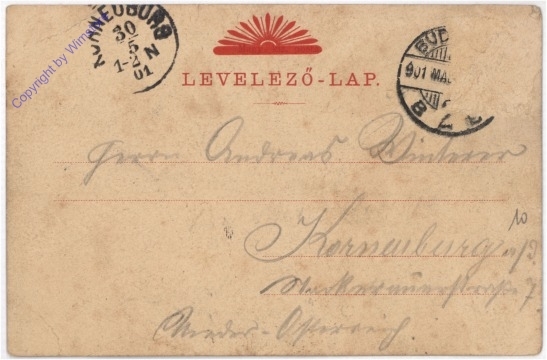 KORNEUBURG
30
5
1-2 N
01
BUD
901 MA
B 7 B
LEVELEZŐ-LAP.
Copyright by
Herrn Andreas Winterer
10
Korneuburg a/D.
Stockerauerstraße 7
Nieder-Österreich